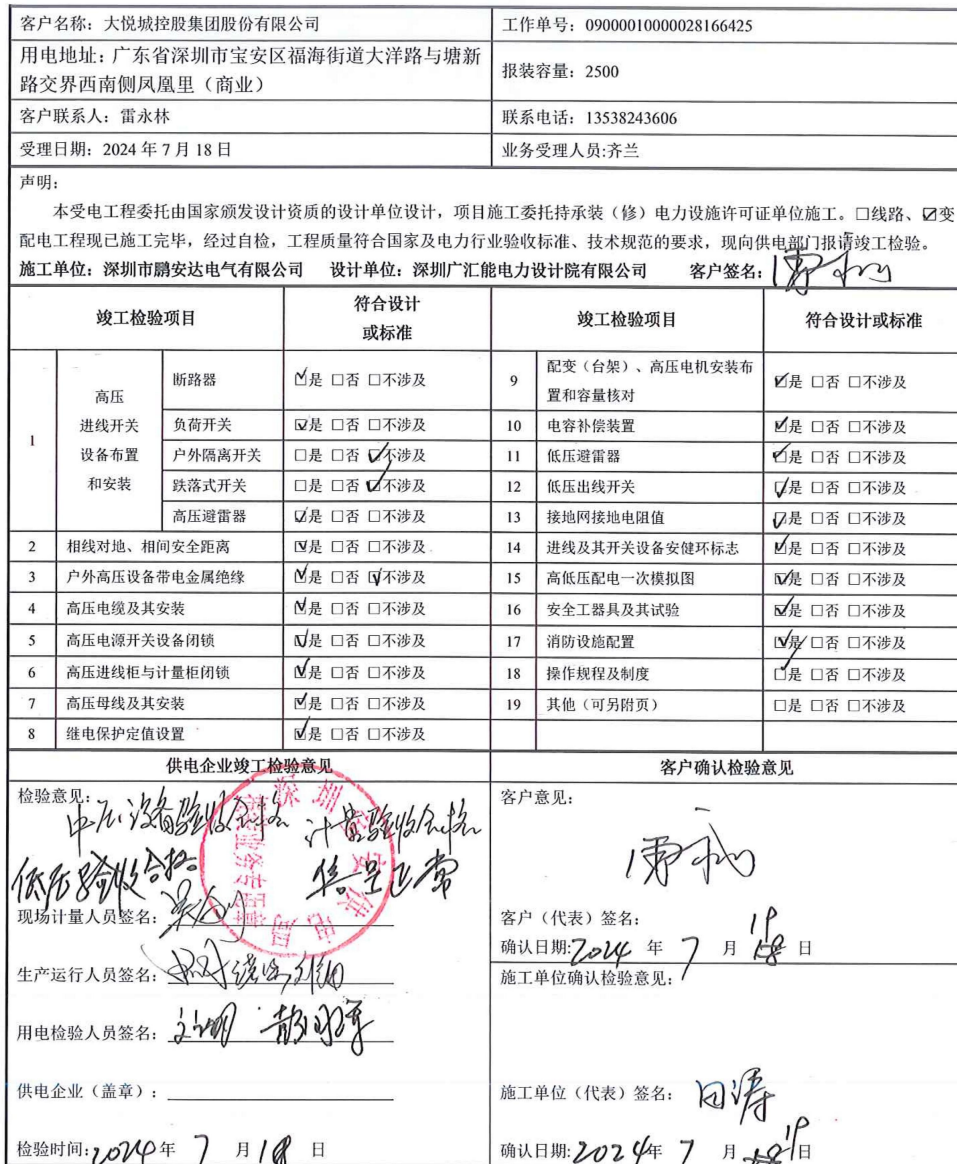 客户名称：大悦城控股集团股份有限公司 工作单号：09000010000028166425
用电地址：广东省深圳市宝安区福海街道大洋路与塘新
路交界西南侧凤凰里（商业） 报装容量：2500
客户联系人：雷永林 联系电话：13538243606
受理日期：2024年7月18日 业务受理人员:齐兰
声明：
本受电工程委托由国家颁发设计资质的设计单位设计，项目施工委托持承装（修）电力设施许可证单位施工。□线路、☑变
配电工程现已施工完毕，经过自检，工程质量符合国家及电力行业验收标准、技术规范的要求，现向供电部门报请竣工检验。
施工单位：深圳市鹏安达电气有限公司 设计单位：深圳广汇能电力设计院有限公司 客户签名：
竣工检验项目 符合设计或标准 竣工检验项目 符合设计或标准
1 高压进线开关设备布置和安装 断路器 ☑是 □否 □不涉及 9 配变（台架）、高压电机安装布置和容量核对 ☑是 □否 □不涉及
负荷开关 ☑是 □否 □不涉及 10 电容补偿装置 ☑是 □否 □不涉及
户外隔离开关 □是 □否 ☑不涉及 11 低压避雷器 ☑是 □否 □不涉及
跌落式开关 □是 □否 ☑不涉及 12 低压出线开关 ☑是 □否 □不涉及
高压避雷器 ☑是 □否 □不涉及 13 接地网接地电阻值 ☑是 □否 □不涉及
2 相线对地、相间安全距离 ☑是 □否 □不涉及 14 进线及其开关设备安健环标志 ☑是 □否 □不涉及
3 户外高压设备带电金属绝缘 ☑是 □否 ☑不涉及 15 高低压配电一次模拟图 ☑是 □否 □不涉及
4 高压电缆及其安装 ☑是 □否 □不涉及 16 安全工器具及其试验 ☑是 □否 □不涉及
5 高压电源开关设备闭锁 ☑是 □否 □不涉及 17 消防设施配置 ☑是 □否 □不涉及
6 高压进线柜与计量柜闭锁 ☑是 □否 □不涉及 18 操作规程及制度 ☑是 □否 □不涉及
7 高压母线及其安装 ☑是 □否 □不涉及 19 其他（可另附页） □是 □否 □不涉及
8 继电保护定值设置 ☑是 □否 □不涉及
供电企业竣工检验意见 客户确认检验意见
检验意见： 客户意见：
中压设备验收合格 计量验收合格
低压验收合格 信号正常
深圳宝安供电局
现场计量人员签名： 客户（代表）签名：
确认日期:2024 年 7 月 19 日
生产运行人员签名： 施工单位确认检验意见：
用电检验人员签名：
供电企业（盖章）： 施工单位（代表）签名： 田涛
检验时间:2024年 7 月 18 日 确认日期:2024年 7 月 19日